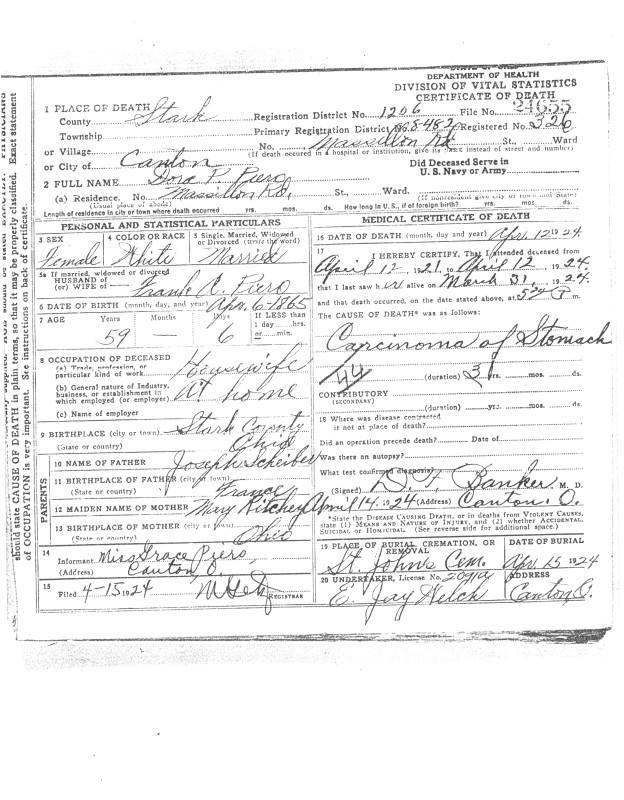 DEPARTMENT OF HEALTH
DIVISION OF VITAL STATISTICS
CERTIFICATE OF DEATH
1 PLACE OF DEATH
County Stark Registration District No. 1206 File No. 24655
Township Primary Registration District No. 8482 Registered No. 326
or Village No. Massillon Rd. St., Ward
(If death occured in a hospital or institution, give its NAME instead of street and number)
or City of Canton
Did Deceased Serve in
U. S. Navy or Army
2 FULL NAME Dora P. Piero
(a) Residence. No. Massillon Rd. St., Ward.
(Usual place of abode) (If nonresident give city or town and State)
Length of residence in city or town where death occurred yrs. mos. ds. How long in U. S., if of foreign birth? yrs. mos. ds.
PERSONAL AND STATISTICAL PARTICULARS
3 SEX Female
4 COLOR OR RACE White
5 Single, Married, Widowed or Divorced (write the word) Married
5a If married, widowed or divorced
HUSBAND of
(or) WIFE of Frank A. Piero
6 DATE OF BIRTH (month, day, and year) Apr. 6-1865
7 AGE Years 59 Months — Days 6 If LESS than 1 day ....hrs. or ....min.
8 OCCUPATION OF DECEASED
(a) Trade, profession, or particular kind of work Housewife
(b) General nature of Industry, business, or establishment in which employed (or employer) At home
(c) Name of employer
9 BIRTHPLACE (city or town) Stark County
(State or country) Ohio
PARENTS
10 NAME OF FATHER Joseph Scheibes
11 BIRTHPLACE OF FATHER (city or town)
(State or country) France
12 MAIDEN NAME OF MOTHER Mary Ritchey
13 BIRTHPLACE OF MOTHER (city or town)
(State or country) Ohio
14 Informant Miss Grace Piero
(Address) Canton O
15 Filed 4-15 1924 REGISTRAR
MEDICAL CERTIFICATE OF DEATH
16 DATE OF DEATH (month, day and year) Apr. 12 1924
17 I HEREBY CERTIFY, That I attended deceased from
April 12, 1921, to April 12, 1924,
that I last saw her alive on March 31, 1924
and that death occurred, on the date stated above, at P m.
The CAUSE OF DEATH* was as follows:
Carcinoma of Stomach
44
(duration) 3 yrs. mos. ds.
CONTRIBUTORY
(SECONDARY)
(duration) yrs. mos. ds.
18 Where was disease contracted
if not at place of death?
Did an operation precede death? Date of
Was there an autopsy?
What test confirmed diagnosis?
(Signed) Banker M. D.
April 14 1924 (Address) Canton. O.
*State the DISEASE CAUSING DEATH, or in deaths from VIOLENT CAUSES,
state (1) MEANS AND NATURE OF INJURY, and (2) whether ACCIDENTAL,
SUICIDAL or HOMICIDAL. (See reverse side for additional space.)
19 PLACE OF BURIAL, CREMATION, OR REMOVAL
St. Johns Cem.
DATE OF BURIAL
Apr. 15 1924
20 UNDERTAKER, License No.
E. Jay Welch
ADDRESS
Canton O.
should state CAUSE OF DEATH in plain terms, so that it may be properly classified. Exact statement
of OCCUPATION is very important. See instructions on back of certificate.